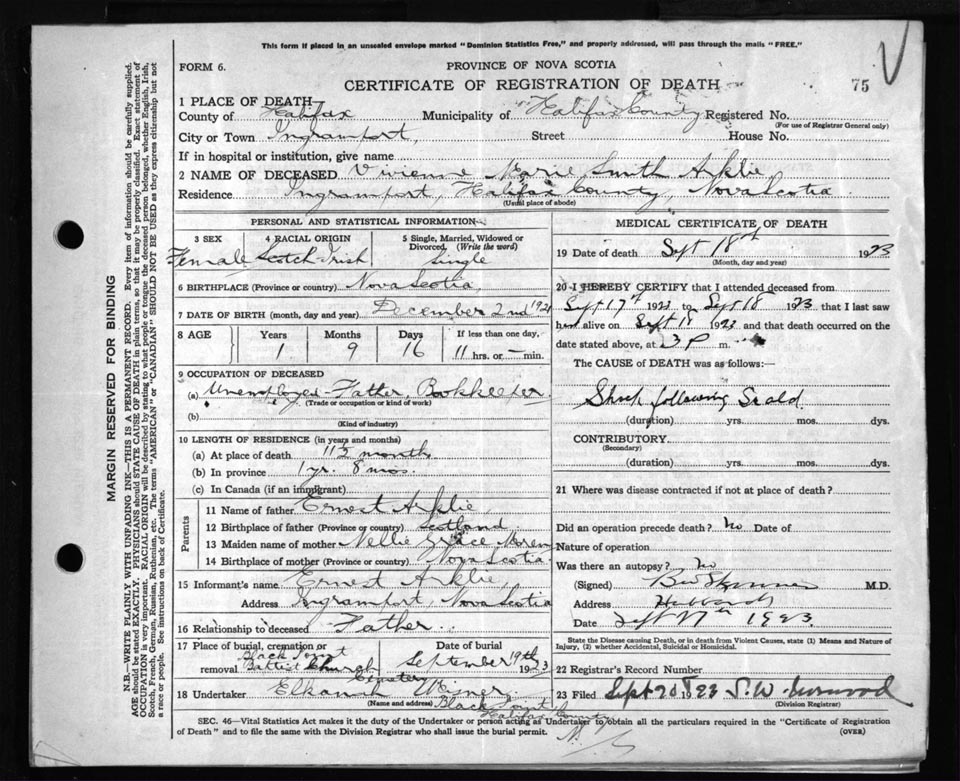 This form if placed in an unsealed envelope marked "Dominion Statistics Free," and properly addressed, will pass through the mails "FREE."
FORM 6.
PROVINCE OF NOVA SCOTIA
CERTIFICATE OF REGISTRATION OF DEATH
75
1 PLACE OF DEATH
County of Halifax Municipality of Halifax County Registered No.
(For use of Registrar General only)
City or Town Ingramport, Street House No.
If in hospital or institution, give name
2 NAME OF DECEASED Vivienne Marie Smith Arklie
Residence Ingramport, Halifax County, Nova Scotia
(Usual place of abode)
PERSONAL AND STATISTICAL INFORMATION
3 SEX 4 RACIAL ORIGIN 5 Single, Married, Widowed or Divorced. (Write the word)
Female Scotch-Irish Single
6 BIRTHPLACE (Province or country) Nova Scotia,
7 DATE OF BIRTH (month, day and year) December 2nd 1921
8 AGE Years Months Days If less than one day.
1 9 16 11 hrs. or — min.
9 OCCUPATION OF DECEASED
(a) Unemployed Father, Bookkeeper
(Trade or occupation or kind of work)
(b)
(Kind of industry)
10 LENGTH OF RESIDENCE (in years and months)
(a) At place of death 11½ months
(b) In province 1 yr. 8 mos.
(c) In Canada (if an immigrant)
Parents
11 Name of father Ernest Arklie,
12 Birthplace of father (Province or country) Scotland
13 Maiden name of mother Nellie Grace
14 Birthplace of mother (Province or country) Nova Scotia
15 Informant's name Ernest Arklie,
Address Ingramport, Nova Scotia
16 Relationship to deceased Father
17 Place of burial, cremation or removal Black Point Baptist Church Cemetery
Date of burial September 19th 1923
18 Undertaker Elkanah Misner
(Name and address) Black Point
Halifax County
N. S.
MEDICAL CERTIFICATE OF DEATH
19 Date of death Sept 18th 1923
(Month, day and year)
20 I HEREBY CERTIFY that I attended deceased from
Sept 17th 1923 to Sept 18 1923 that I last saw
her alive on Sept 18 1923 and that death occurred on
date stated above, at 3 P m.
The CAUSE OF DEATH was as follows:
Shock following Scald
(duration) yrs. mos. dys.
CONTRIBUTORY
(Secondary)
(duration) yrs. mos. dys.
21 Where was disease contracted if not at place of death?
Did an operation precede death? No Date of
Nature of operation
Was there an autopsy? No
(Signed) M.D.
Address Hubbards
Date Sept 1923
State the Disease causing Death, or in death from Violent Causes, state (1) Means and Nature of Injury, (2) whether Accidental, Suicidal or Homicidal.
22 Registrar's Record Number
23 Filed Sept 20 1923 S. W.
(Division Registrar)
SEC. 46—Vital Statistics Act makes it the duty of the Undertaker or person acting as Undertaker to obtain all the particulars required in the "Certificate of Registration
of Death" and to file the same with the Division Registrar who shall issue the burial permit. (OVER)
MARGIN RESERVED FOR BINDING
N.B.—WRITE PLAINLY WITH UNFADING INK—THIS IS A PERMANENT RECORD. Every item of information should be carefully supplied.
AGE should be stated EXACTLY. PHYSICIANS should STATE CAUSE OF DEATH in plain terms, so that it may be properly classified. Exact statement of
OCCUPATION is very important. RACIAL ORIGIN will be described by stating to what people or tongue the deceased person belonged, whether English, Irish,
Scotch, French, German, Russian, Ruthenian, etc. The terms "AMERICAN" or "CANADIAN" SHOULD NOT BE USED as they express citizenship but not
a race or people. See instructions on back of Certificate.